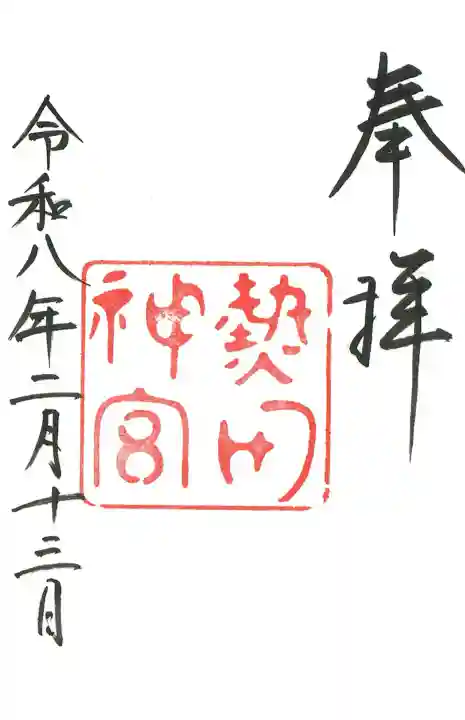 奉拝
熱田
神宮
令和八年二月十三日